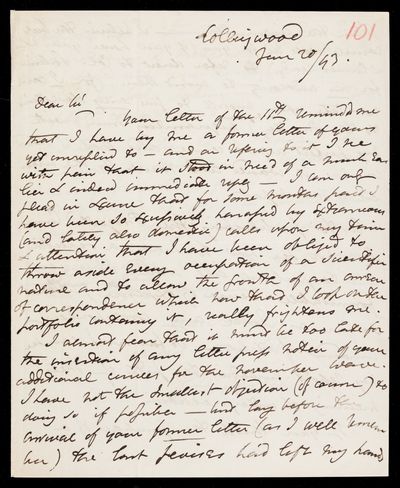 101
Collingwood
Jan 20/43.
Dear Sir
Your letter of the 11th reminded me
that I have by me a former letter of yours
yet unreplied to – and on referring to it I see
with pain that it stood in need of a much ear
lier & indeed immediate reply – I can only
plead in excuse that for some months past I
have been so excessively harassed by extraneous
(and lately also domestic) calls upon my time
& attention that I have been obliged to
throw aside every occupation of a scientific
nature and to allow the growth of an arrear
of correspondence which now that I look on the
portfolio containing it, really frightens me.
I almost fear that it must be too late for
the insertion of any letter press notice of your
additional curves for the November wave.
I have not the smallest objection (of course) to
doing so if possible – but long before the
arrival of your former letter (as I well remem
ber) the last revises had left my hand